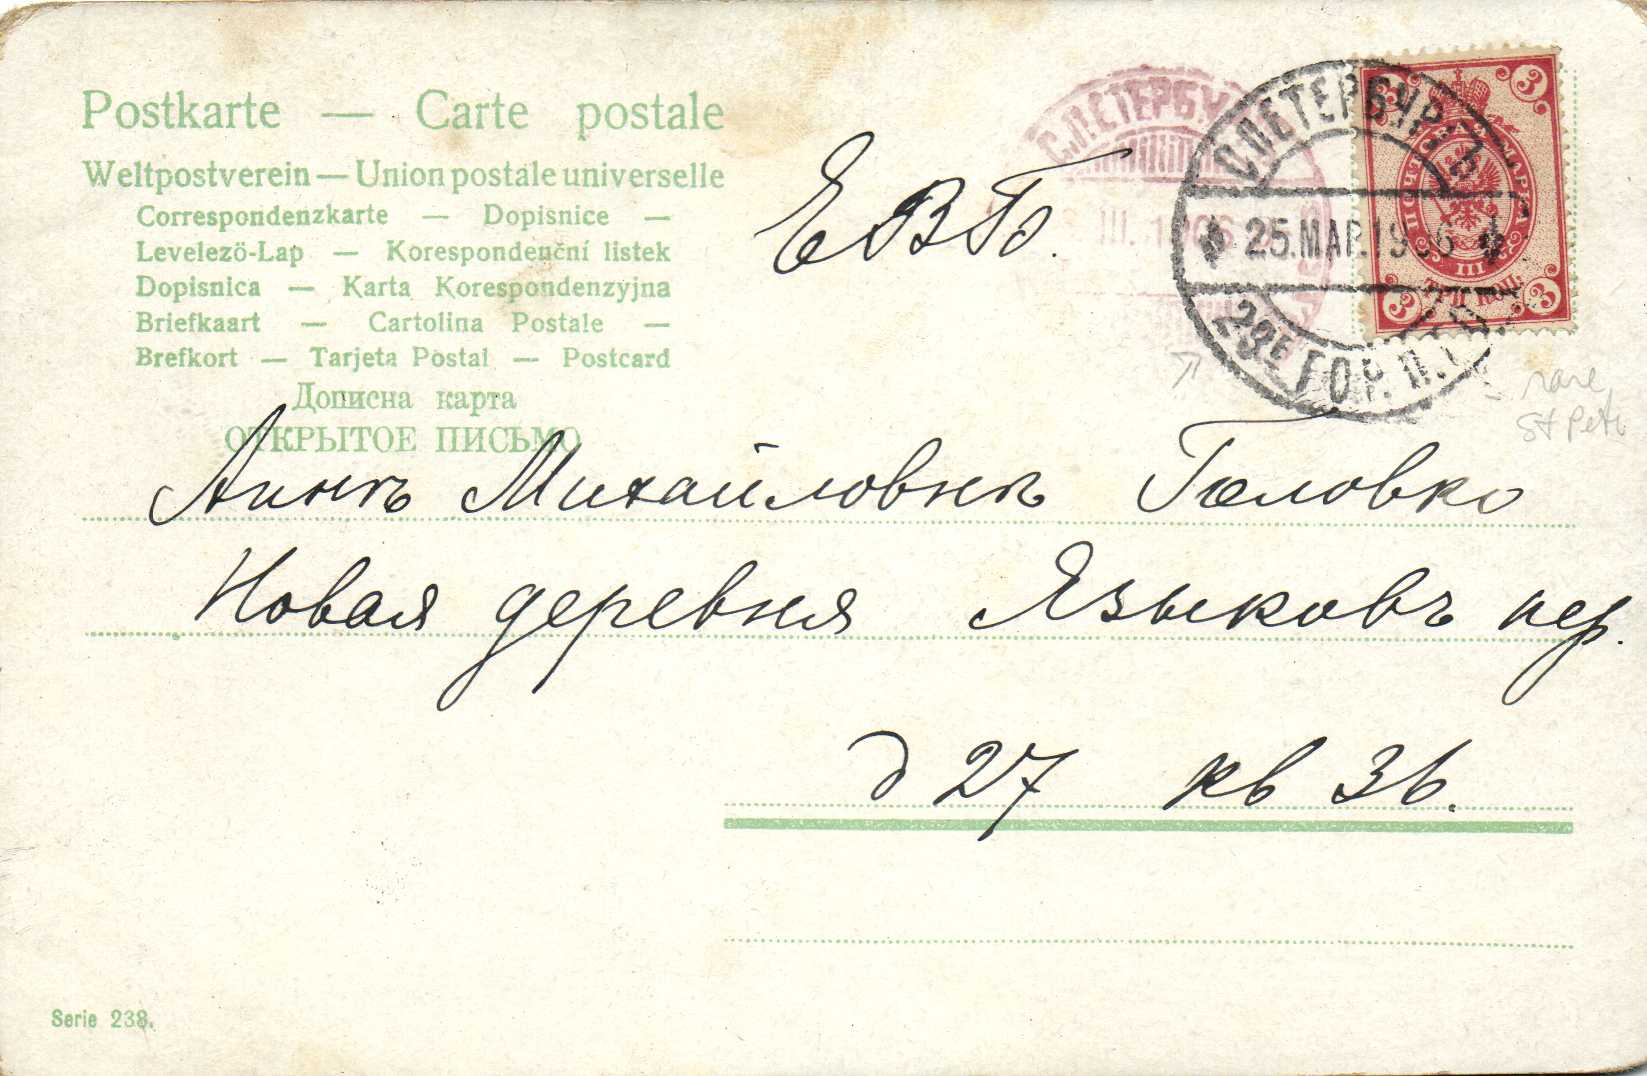 Postkarte — Carte postale
Weltpostverein — Union postale universelle
Correspondenzkarte — Dopisnice —
Levelezö-Lap — Korespondenční listek
Dopisnica — Karta Korespondenzyjna
Briefkaart — Cartolina Postale —
Brefkort — Tarjeta Postal — Postcard
Дописна карта
ОТКРЫТОЕ ПИСЬМО
ЕВБ.
С.ПЕТЕРБУ
III. 1906
С.ПЕТЕРБУРГЪ
25.МАР.1906
23Е ГОР. П.
ПОЧТОВАЯ МАРКА
3 3 3 3
III
ТРИ КОП.
rare
St Pete
Аннѣ Михайловнѣ Головко
Новая деревня Языковъ пер.
д 27 кв 36.
Serie 238.